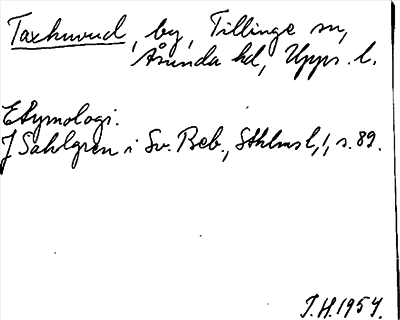 Taxhuvud, by, Tillinge sn,
Åsunda hd, Upps. l.
Etymologi.
J Sahlgren i Sv. Beb., Sthlms l, 1, s. 89.
J.H. 1954.